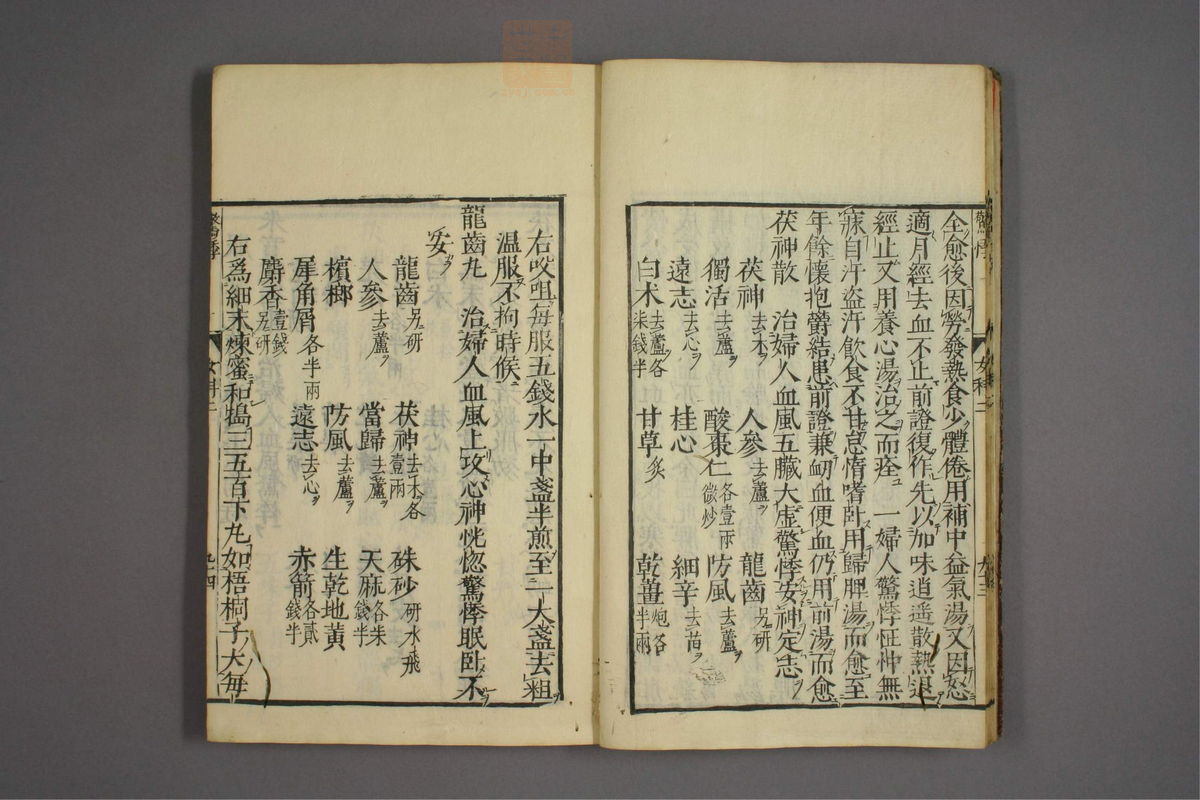 驚悸
女科二
九三
全愈後因勞發熱食少體倦用補中益氣湯又因怒
適月經去血不止前證復作先以加味逍遙散熱退
經止又用養心湯治之而痊 一婦人驚悸怔忡無
寐自汗盜汗飲食不甘怠惰嗜卧用歸脾湯而愈至
年餘懷抱鬱結患前證兼衂血便血仍用前湯而愈
茯神散 治婦人血風五臟大虛驚悸安神定志
茯神去木 人參去蘆 龍齒另研
獨活去蘆 酸棗仁各壹兩微炒 防風去蘆
遠志去心 桂心 細辛去苗
白术去蘆各柒錢半 甘草炙 乾薑炮各半兩
右㕮咀每服五錢水一中盞半煎至一大盞去粗
溫服不拘時候
龍齒丸 治婦人血風上攻心神恍惚驚悸眠卧不
安
龍齒另研 茯神去木各壹兩 硃砂研水飛
人參去蘆 當歸去蘆 天麻各柒錢半
檳榔 防風去蘆 生乾地黃
犀角屑各半兩 遠志去心 赤箭各貳錢半
麝香壹錢另研
右爲細末煉蜜和搗三五百下丸如梧桐子大每
女科二
九四